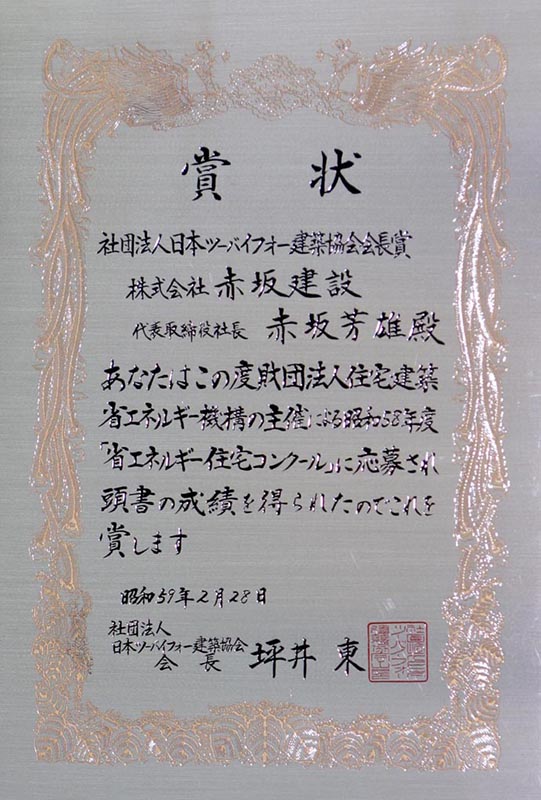 賞状
社団法人日本ツーバイフォー建築協会会長賞
株式会社 赤坂建設
代表取締役社長 赤坂芳雄殿
あなたはこの度財団法人住宅建築
省エネルギー機構の主催による昭和58年度
「省エネルギー住宅コンクール」に応募され
頭書の成績を得られたのでこれを
賞します
昭和59年2月28日
社団法人
日本ツーバイフォー建築協会
会長 坪井東